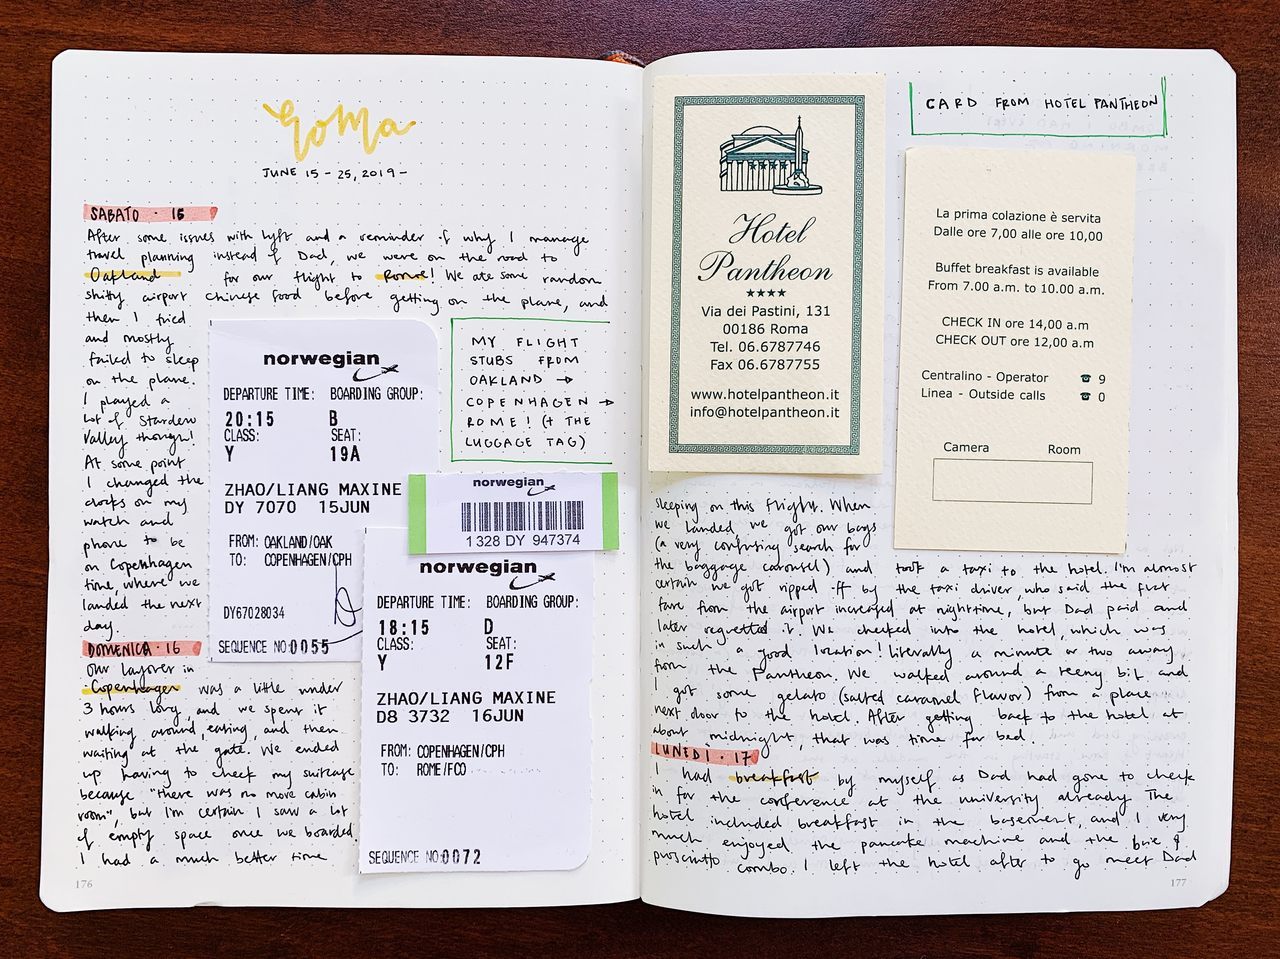 Roma
JUNE 15 - 25, 2019 -
SABATO · 15
After some issues with Lyft and a reminder of why I manage
travel planning instead of Dad, we were on the road to
Oakland for our flight to Rome! We ate some random
shitty airport chinese food before getting on the plane, and
then I tried
and mostly
failed to sleep
on the plane.
I played a
lot of Stardew
Valley though!
At some point
I changed the
clocks on my
watch and
phone to be
on Copenhagen
time, where we
landed the next
day.
norwegian
DEPARTURE TIME: BOARDING GROUP:
20:15 B
CLASS: SEAT:
Y 19A
ZHAO/LIANG MAXINE
DY 7070 15JUN
FROM: OAKLAND/OAK
TO: COPENHAGEN/CPH
DY67028034
SEQUENCE NO:0055
MY FLIGHT
STUBS FROM
OAKLAND →
COPENHAGEN →
ROME! (+ THE
LUGGAGE TAG)
norwegian
1 328 DY 947374
norwegian
DEPARTURE TIME: BOARDING GROUP:
18:15 D
CLASS: SEAT:
Y 12F
ZHAO/LIANG MAXINE
D8 3732 16JUN
FROM: COPENHAGEN/CPH
TO: ROME/FCO
SEQUENCE NO:0072
DOMENICA · 16
Our layover in
Copenhagen was a little under
3 hours long, and we spent it
walking around, eating, and then
waiting at the gate. We ended
up having to check my suitcase
because "there was no more cabin
room", but I'm certain I saw a lot
of empty space once we boarded.
I had a much better time
176
Hotel
Pantheon
★★★★
Via dei Pastini, 131
00186 Roma
Tel. 06.6787746
Fax 06.6787755
www.hotelpantheon.it
info@hotelpantheon.it
CARD FROM HOTEL PANTHEON
La prima colazione è servita
Dalle ore 7,00 alle ore 10,00
Buffet breakfast is available
From 7.00 a.m. to 10.00 a.m.
CHECK IN ore 14,00 a.m
CHECK OUT ore 12,00 a.m
Centralino - Operator ☎ 9
Linea - Outside calls ☎ 0
Camera Room
sleeping on this flight. When
we landed, we got our bags
(a very confusing search for
the baggage carousel) and took a taxi to the hotel. I'm almost
certain we got ripped off by the taxi driver, who said the flat
fare from the airport increased at nighttime, but Dad paid and
later regretted it. We checked into the hotel, which was
in such a good location! Literally a minute or two away
from the Pantheon. We walked around a teeny bit and
I got some gelato (salted caramel flavor) from a place
next door to the hotel. After getting back to the hotel at
about midnight, that was time for bed.
LUNEDÌ · 17
I had breakfast by myself as Dad had gone to check
in for the conference at the university already. The
hotel included breakfast in the basement, and I very
much enjoyed the pancake machine and the brie &
prosciutto combo. I left the hotel after to go meet Dad
177